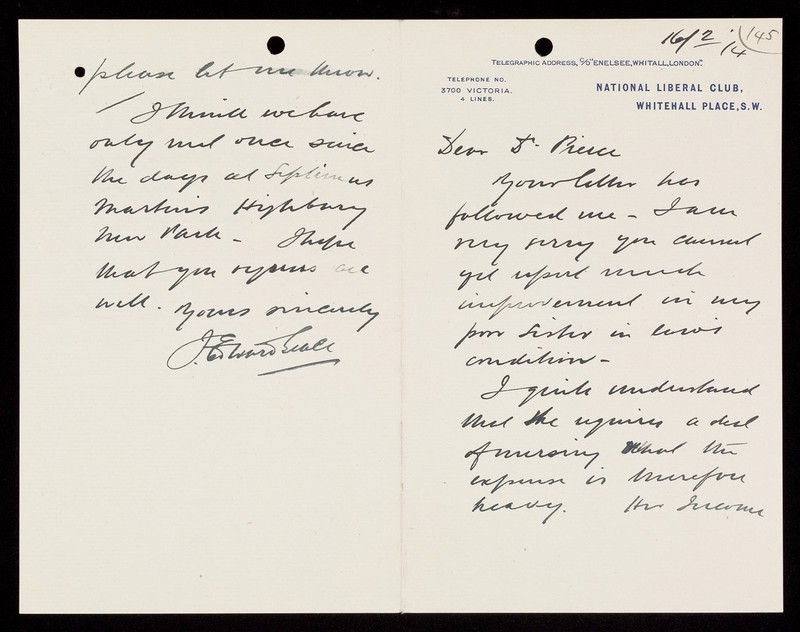 16/2/14
145
TELEGRAPHIC ADDRESS, C/O "ENELSEE, WHITALL, LONDON".
TELEPHONE NO.
3700 VICTORIA.
4 LINES.
NATIONAL LIBERAL CLUB,
WHITEHALL PLACE, S.W.
Dear Dr. Pierce
Your letter has
followed me - I am
very sorry you cannot
yet report much
improvement in my
poor sister in law's
condition -
I quite understand
that she requires a deal
of nursing that the
expense is therefore
heavy. Her Income
please let me know.
I think we have
only met once since
the days at Septimus
Martin's Highbury
New Park - I hope
that you are
well. Yours sincerely
J. Edward